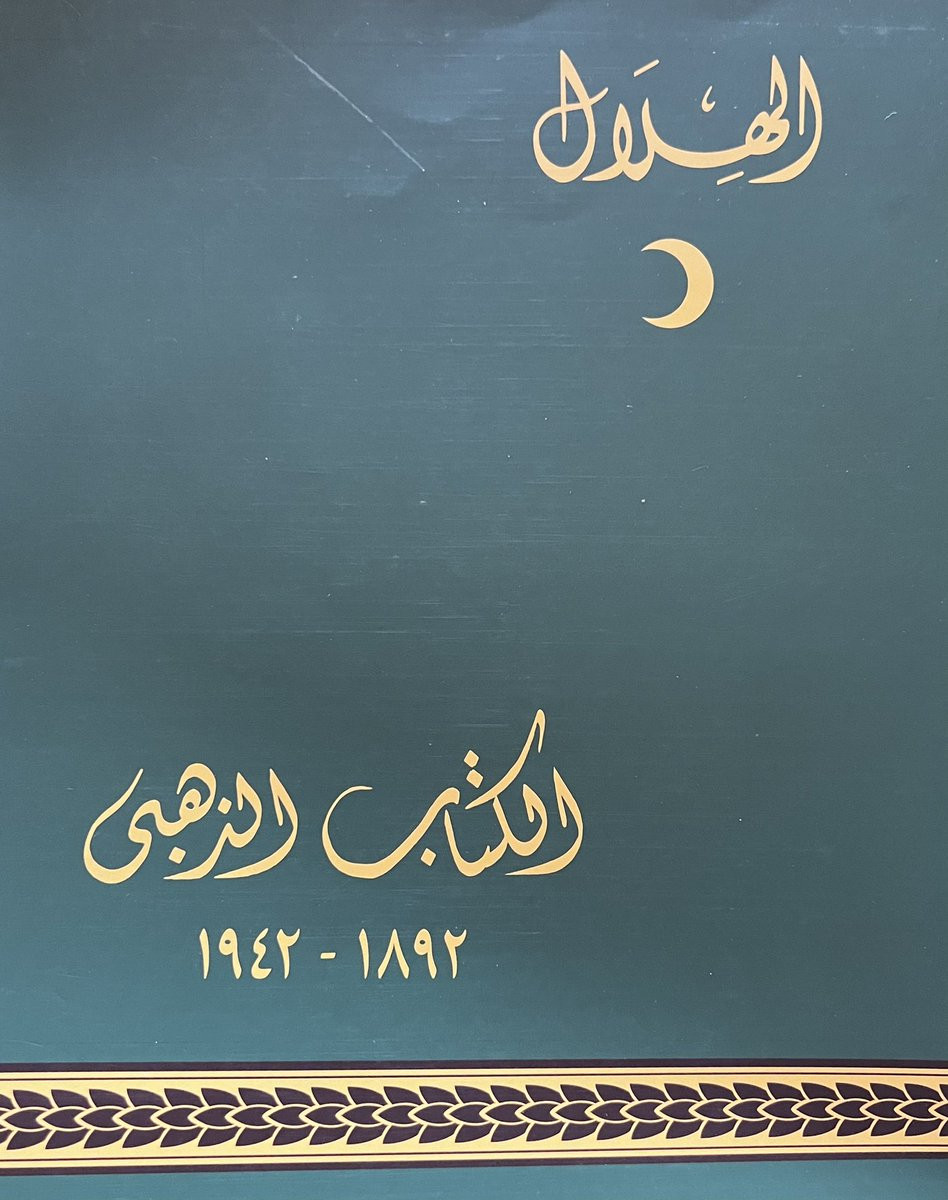 الهِلَال
الكتاب الذهبى
١٨٩٢ - ١٩٤٢